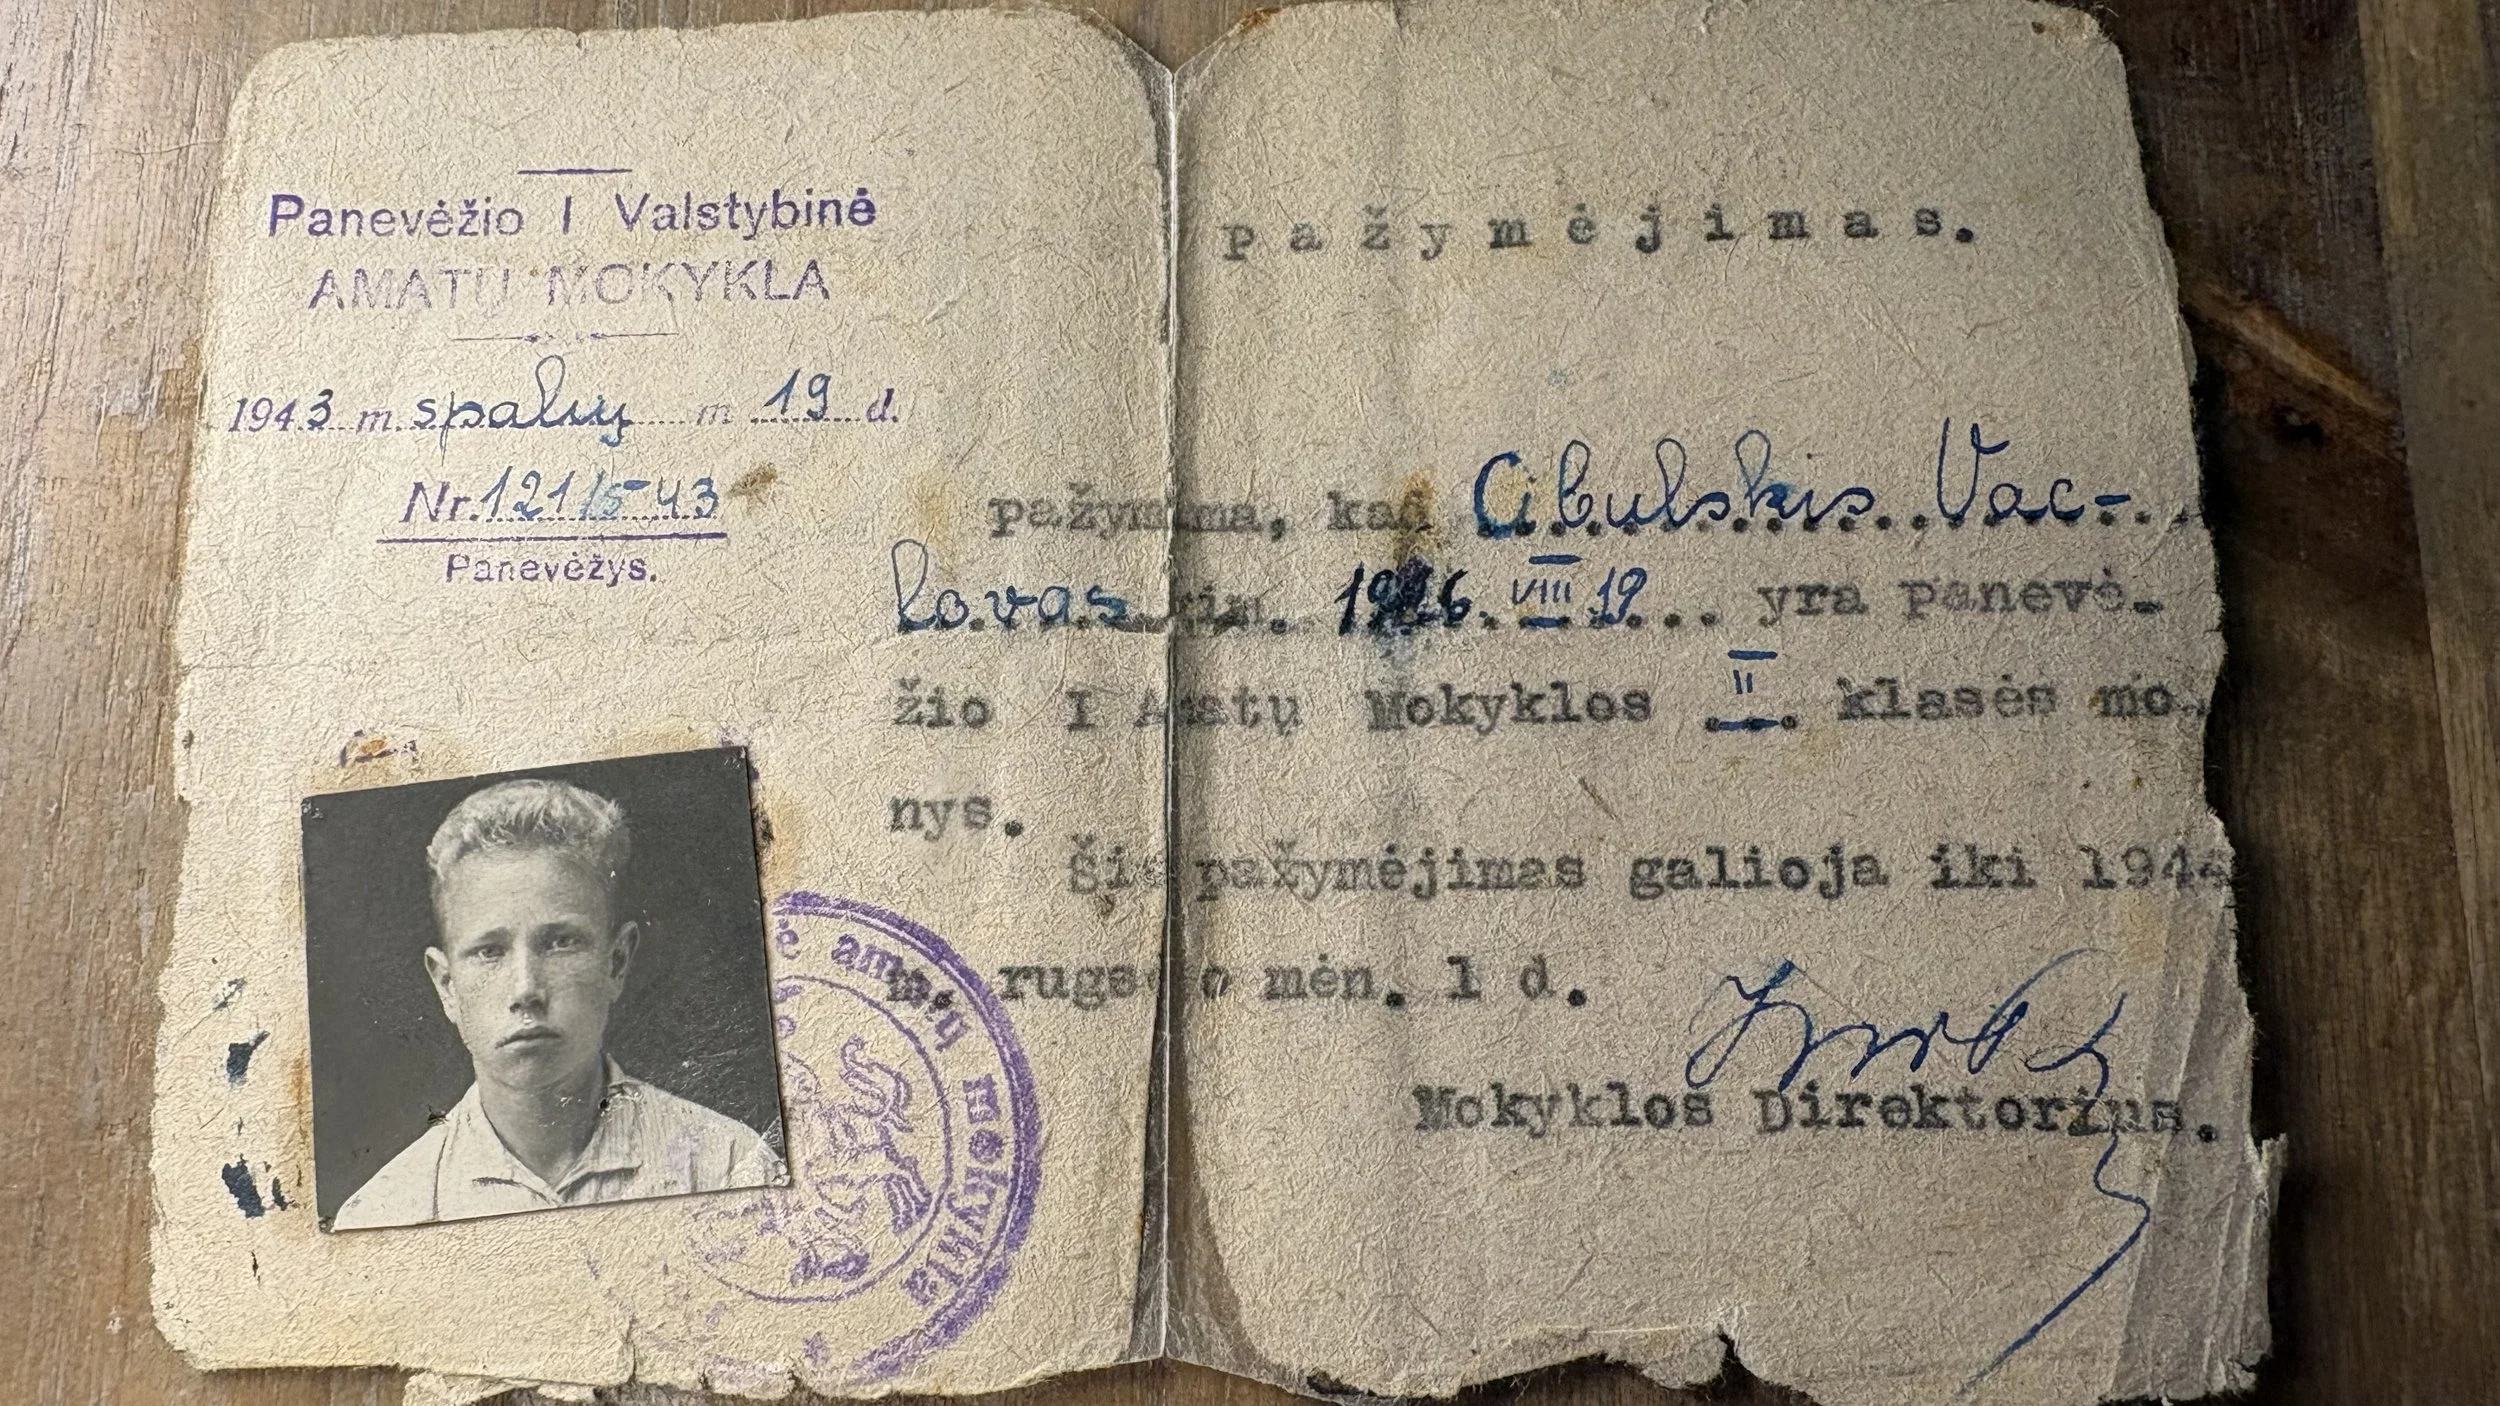 Panevėžio I Valstybinė
AMATŲ MOKYKLA
1943 m. spalių m 19 d.
Nr. 121/5-43
Panevėžys.
amatų mokykla
pažymėjimas.
pažymima, kad Cibulskis Vac-
lovas gim. 1926. VIII 19 yra panevė-
žio I Amatų Mokyklos II klasės mo-
nys.
Šis pažymėjimas galioja iki 1944
m. rugsėjo mėn. 1 d.
Mokyklos Direktorius.